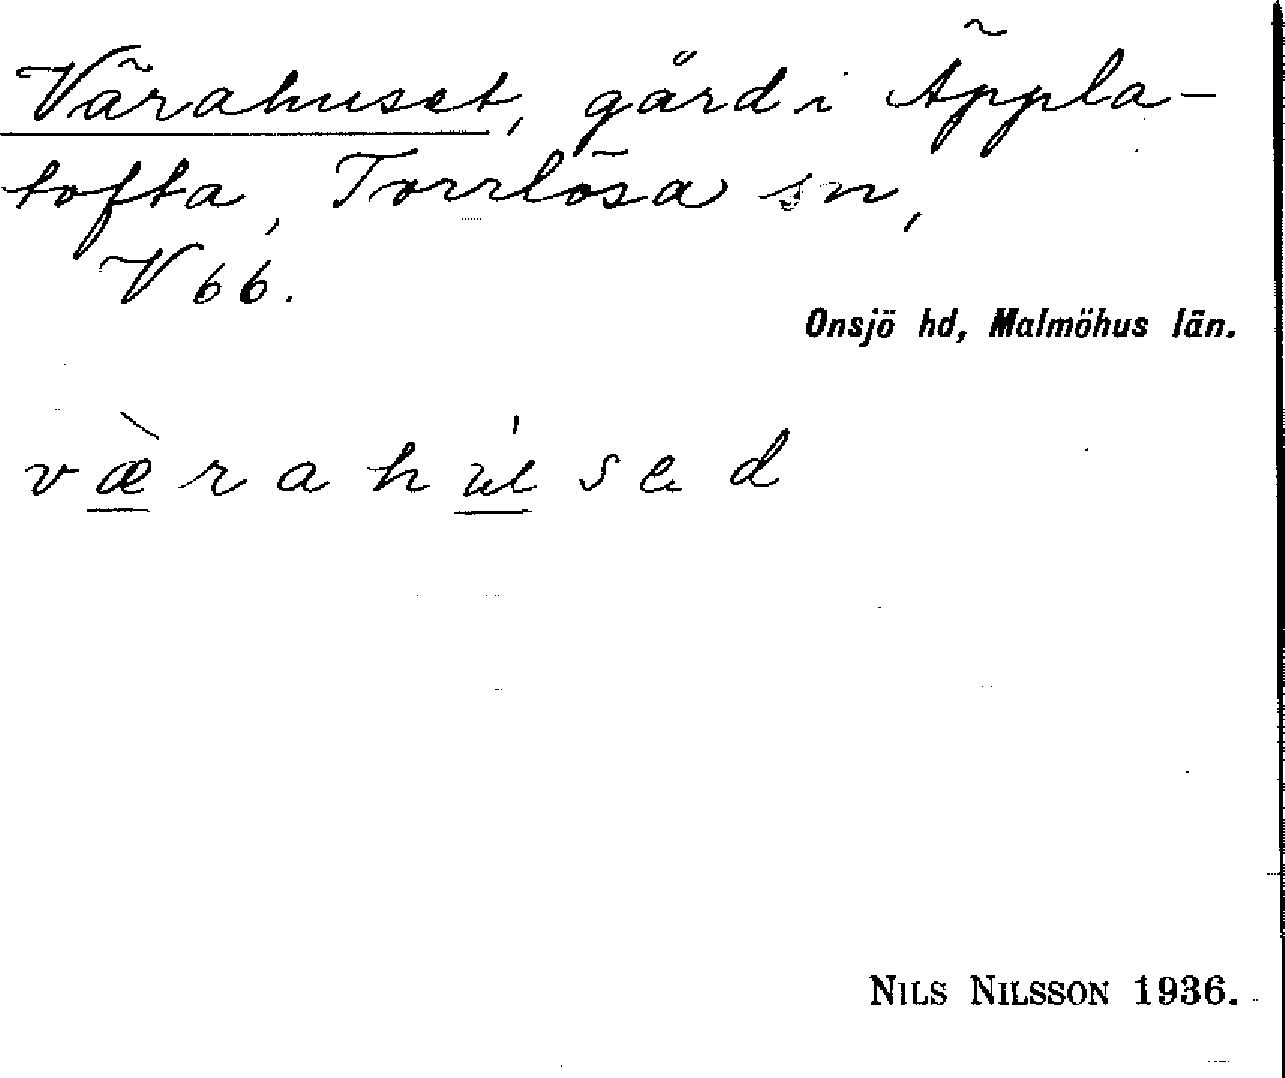 Värahuset, gård i Äppla-
tofta, Torrlösa sn,
V 66.
Onsjö hd, Malmöhus län.
væ̀rahúsed
NILS NILSSON 1936.